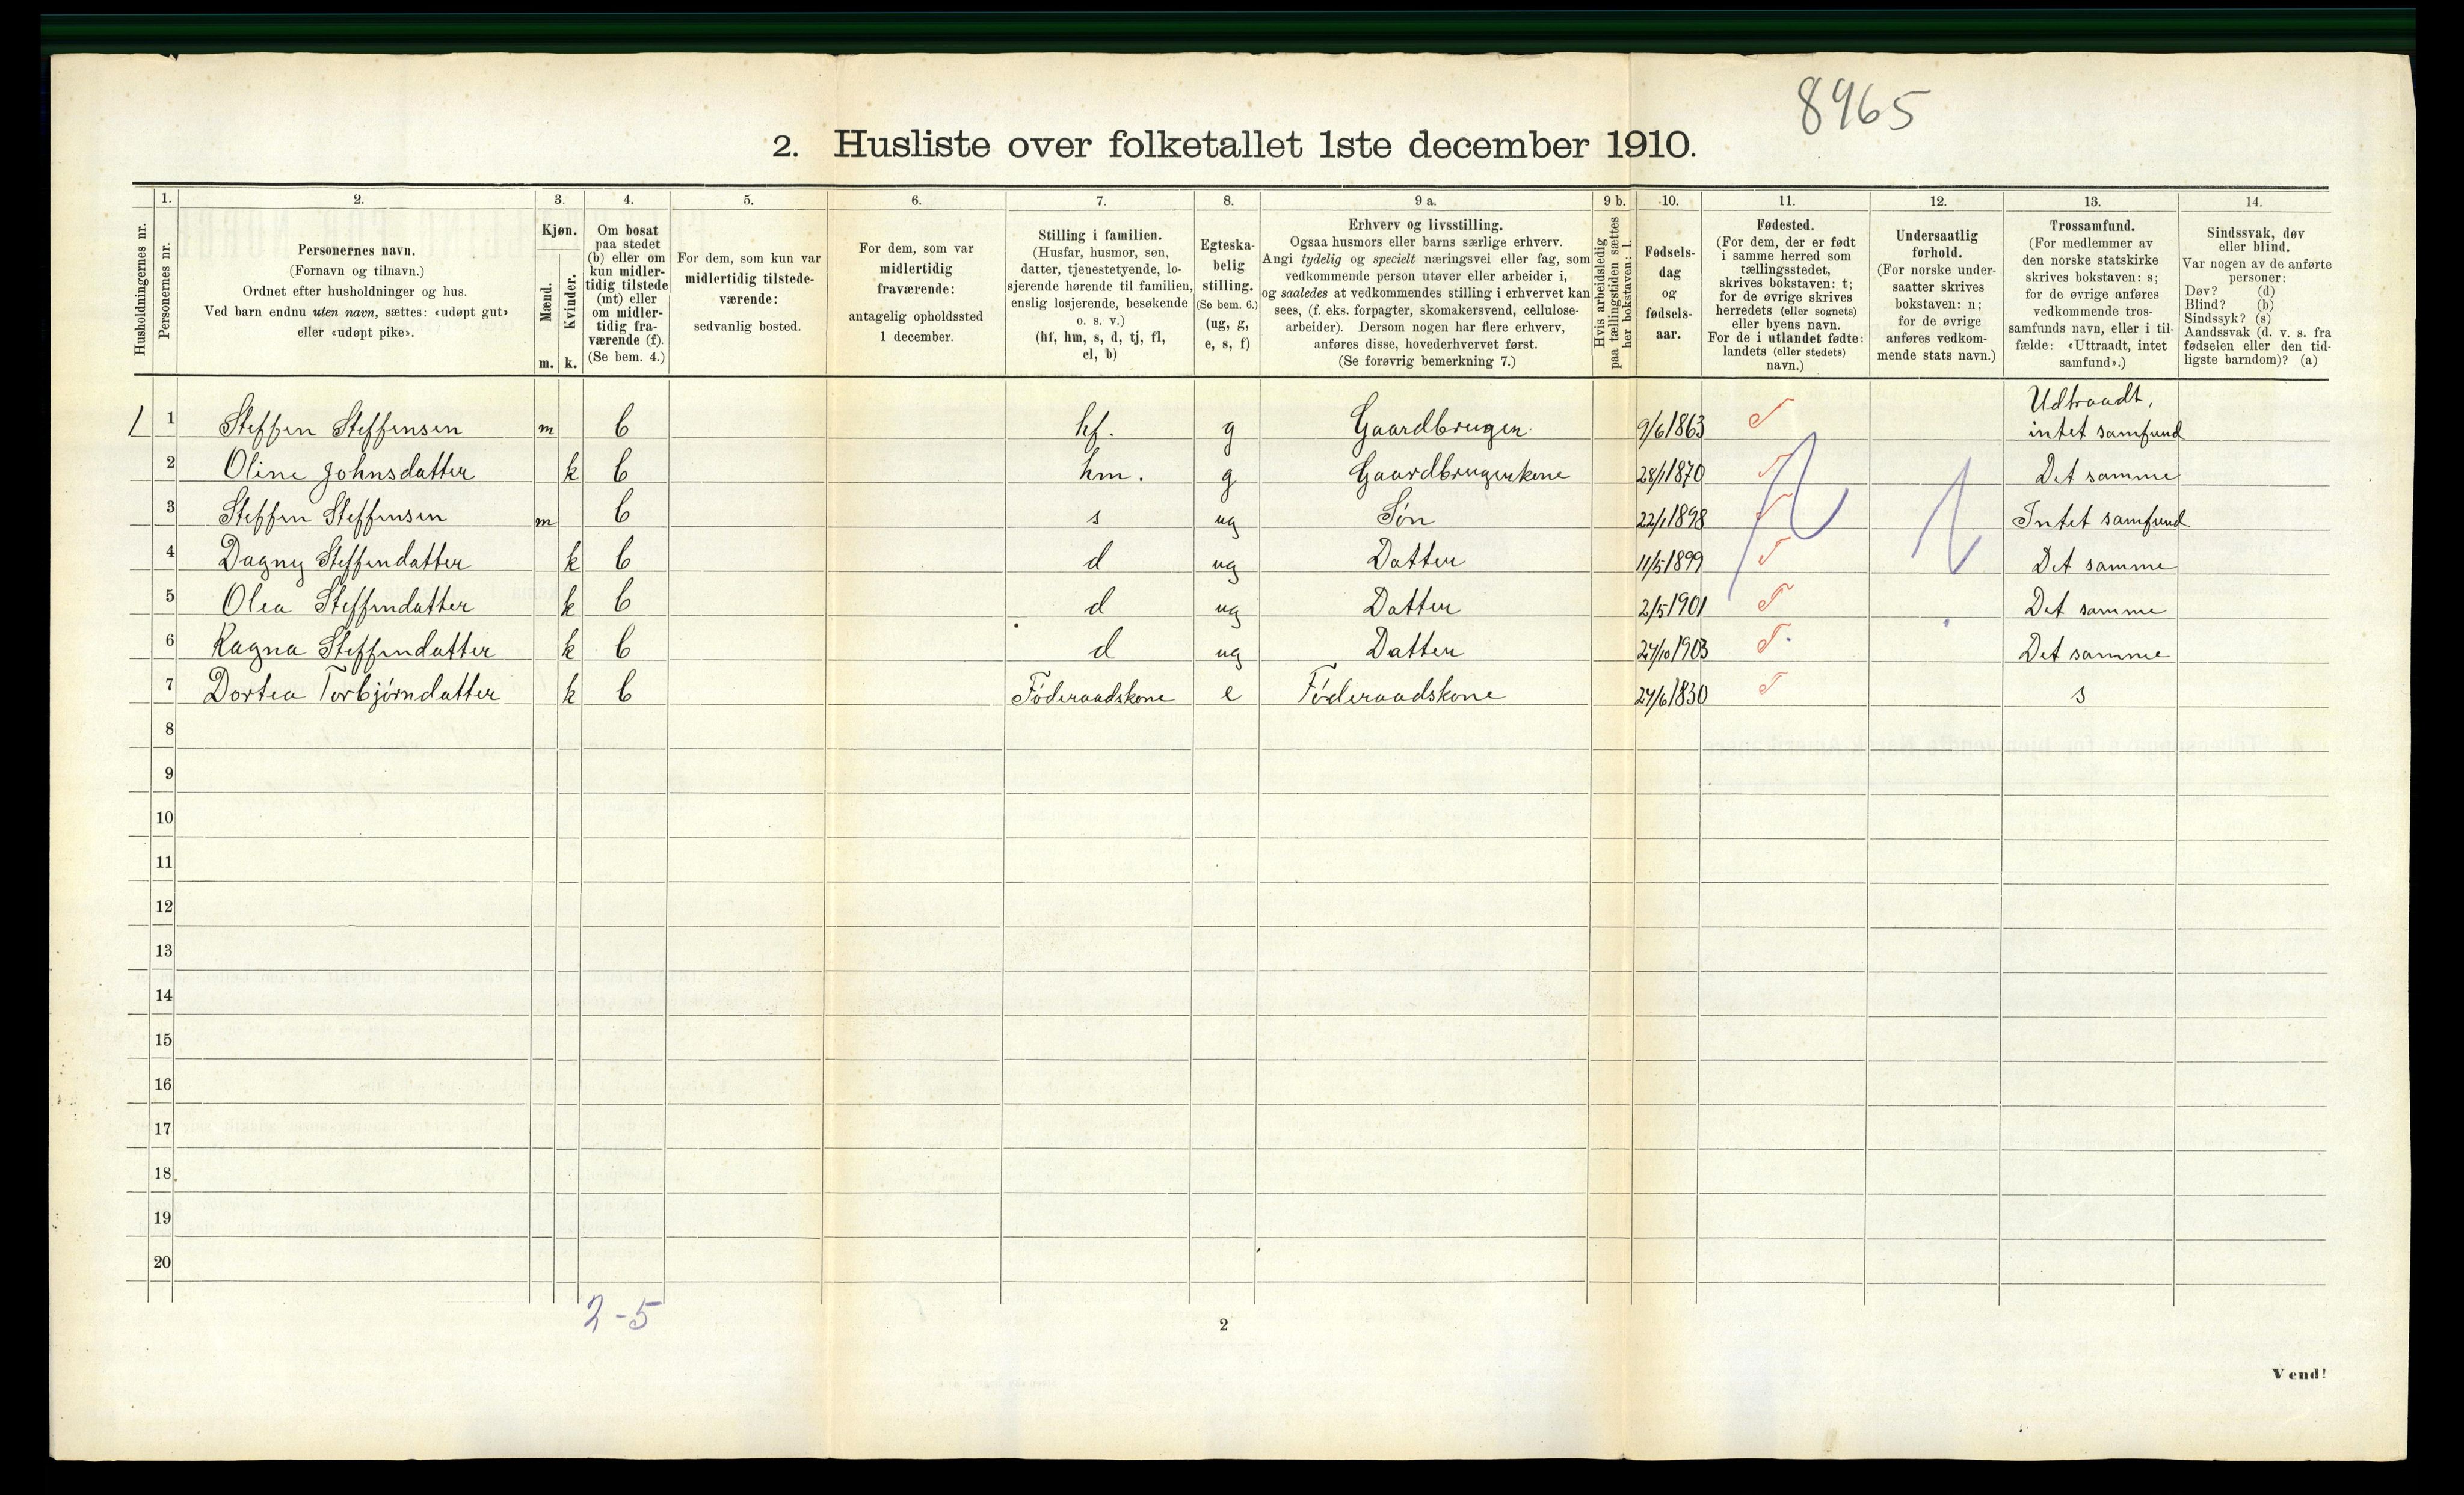 8965
2. Husliste over folketallet 1ste december 1910.
Husholdningernes nr.
1.
Personernes nr.
2.
Personernes navn.
(Fornavn og tilnavn.)
Ordnet efter husholdninger og hus.
Ved barn endnu uten navn, sættes: «udøpt gut»
eller «udøpt pike».
3.
Kjøn.
Mænd.
Kvinder.
m. k.
4.
Om bosat
paa stedet
(b) eller om
kun midler-
tidig tilstede
(mt) eller
om midler-
tidig fra-
værende (f).
(Se bem. 4.)
5.
For dem, som kun var
midlertidig tilstede-
værende:
sedvanlig bosted.
6.
For dem, som var
midlertidig
fraværende:
antagelig opholdssted
1 december.
7.
Stilling i familien.
(Husfar, husmor, søn,
datter, tjenestetyende, lo-
sjerende hørende til familien,
enslig losjerende, besøkende
o. s. v.)
(hf, hm, s, d, tj, fl,
el, b)
8.
Egteska-
belig
stilling.
(Se bem. 6.)
(ug, g,
e, s, f)
9 a.
Erhverv og livsstilling.
Ogsaa husmors eller barns særlige erhverv.
Angi tydelig og specielt næringsvei eller fag, som
vedkommende person utøver eller arbeider i,
og saaledes at vedkommendes stilling i erhvervet kan
sees, (f. eks. forpagter, skomakersvend, cellulose-
arbeider). Dersom nogen har flere erhverv,
anføres disse, hovederhvervet først.
(Se forøvrig bemerkning 7.)
9 b.
Hvis arbeidsledig
paa tællingstiden sættes
her bokstaven: l.
10.
Fødsels-
dag
og
fødsels-
aar.
11.
Fødested.
(For dem, der er født
i samme herred som
tællingsstedet,
skrives bokstaven: t;
for de øvrige skrives
herredets (eller sognets)
eller byens navn.
For de i utlandet fødte:
landets (eller stedets)
navn.)
12.
Undersaatlig
forhold.
(For norske under-
saatter skrives
bokstaven: n;
for de øvrige
anføres vedkom-
mende stats navn.)
13.
Trossamfund.
(For medlemmer av
den norske statskirke
skrives bokstaven: s;
for de øvrige anføres
vedkommende tros-
samfunds navn, eller i til-
fælde: «Uttraadt, intet
samfund».)
14.
Sindssvak, døv
eller blind.
Var nogen av de anførte
personer:
Døv? (d)
Blind? (b)
Sindssyk? (s)
Aandssvak (d. v. s. fra
fødselen eller den tid-
ligste barndom)? (a)
Udtraadt,
1 1 Steffen Steffensen m b hf. g Gaardbruger 9/6 1863 T intet samfund
2 Oline Johnsdatter k b hm. g Gaardbrugerkone 28/1 1870 T Det samme
3 Steffen Steffensen m b s ug Søn 22/1 1898 T Intet samfund
4 Dagny Steffendatter k b d ug Datter 11/5 1899 T Det samme
5 Olea Steffendatter k b d ug Datter 2/5 1901 T Det samme
6 Ragna Steffendatter k b d ug Datter 24/10 1903 T Det samme
7 Dortea Torbjørndatter k b Føderaadskone e Føderaadskone 24/6 1830 T s
8
9
10
11
12
13
14
15
16
17
18
19
20
2-5
2
Vend!